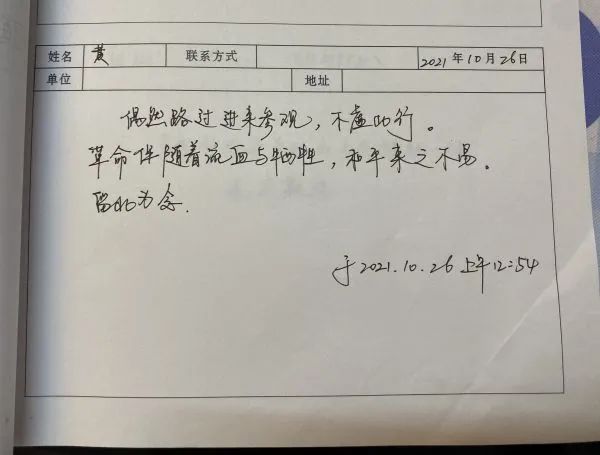 姓名 黄 联系方式 2021年10月26日
单位 地址
偶然路过进来参观，不虚此行。
革命伴随着流血与牺牲，和平来之不易。
留此为念.
于2021.10.26 上午12:54